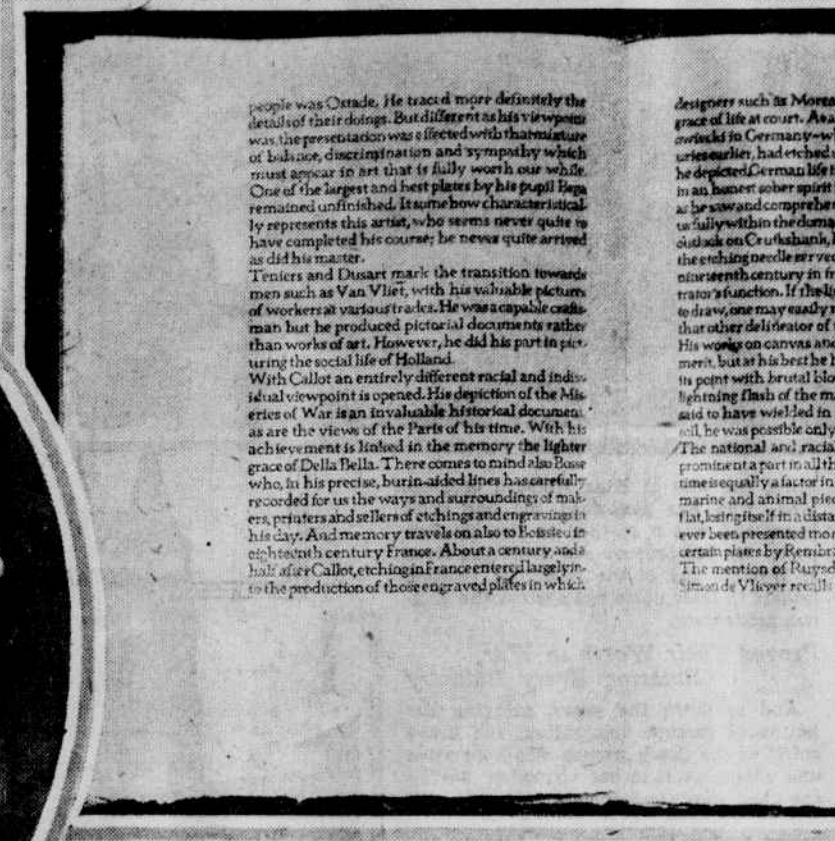 people was Ostade. He traced more definitely the
details of their doings. But different as his viewpoint
was, the presentation was effected with that mixture
of balance, discrimination and sympathy which
must appear in art that is fully worth our while.
One of the largest and best plates by his pupil Bega
remained unfinished. It somehow characteristical-
ly represents this artist, who seems never quite to
have completed his course; he never quite arrived
as did his master.
Teniers and Dusart mark the transition towards
men such as Van Vliet, with his valuable pictures
of workers at various trades. He was a capable crafts-
man but he produced pictorial documents rather
than works of art. However, he did his part in pic-
turing the social life of Holland.
With Callot an entirely different racial and indiv-
idual viewpoint is opened. His depiction of the Mis-
eries of War is an invaluable historical document
as are the views of the Paris of his time. With his
achievement is linked in the memory the lighter
grace of Della Bella. There comes to mind also Bosse
who, in his precise, burin-aided lines has carefully
recorded for us the ways and surroundings of mak-
ers, printers and sellers of etchings and engravings in
his day. And memory travels on also to Boissieu in
eighteenth century France. About a century and a
half after Callot, etching in France entered largely in-
to the production of those engraved plates in which
designers such as Morea
grace of life at court. As a
owiecki in Germany-w
uries earlier, had etched
he depicted German life
in an honest sober spirit
as he saw and comprehe
us fully within the doma
outlook on Cruikshank,
the etching needle served
nineteenth century in
trator's function. If the li
to draw, one may easily
that other delineator of
His works on canvas and
merit, but at his best he h
its point with brutal blo
lightning flash of the m
said to have wielded in
he was possible only
The national and racial
prominent a part in all th
time is equally a factor in
marine and animal piec
flat, losing itself in a dista
ever been presented mor
certain plates by Rembra
The mention of Ruysd
Simon de Vlieger recalls